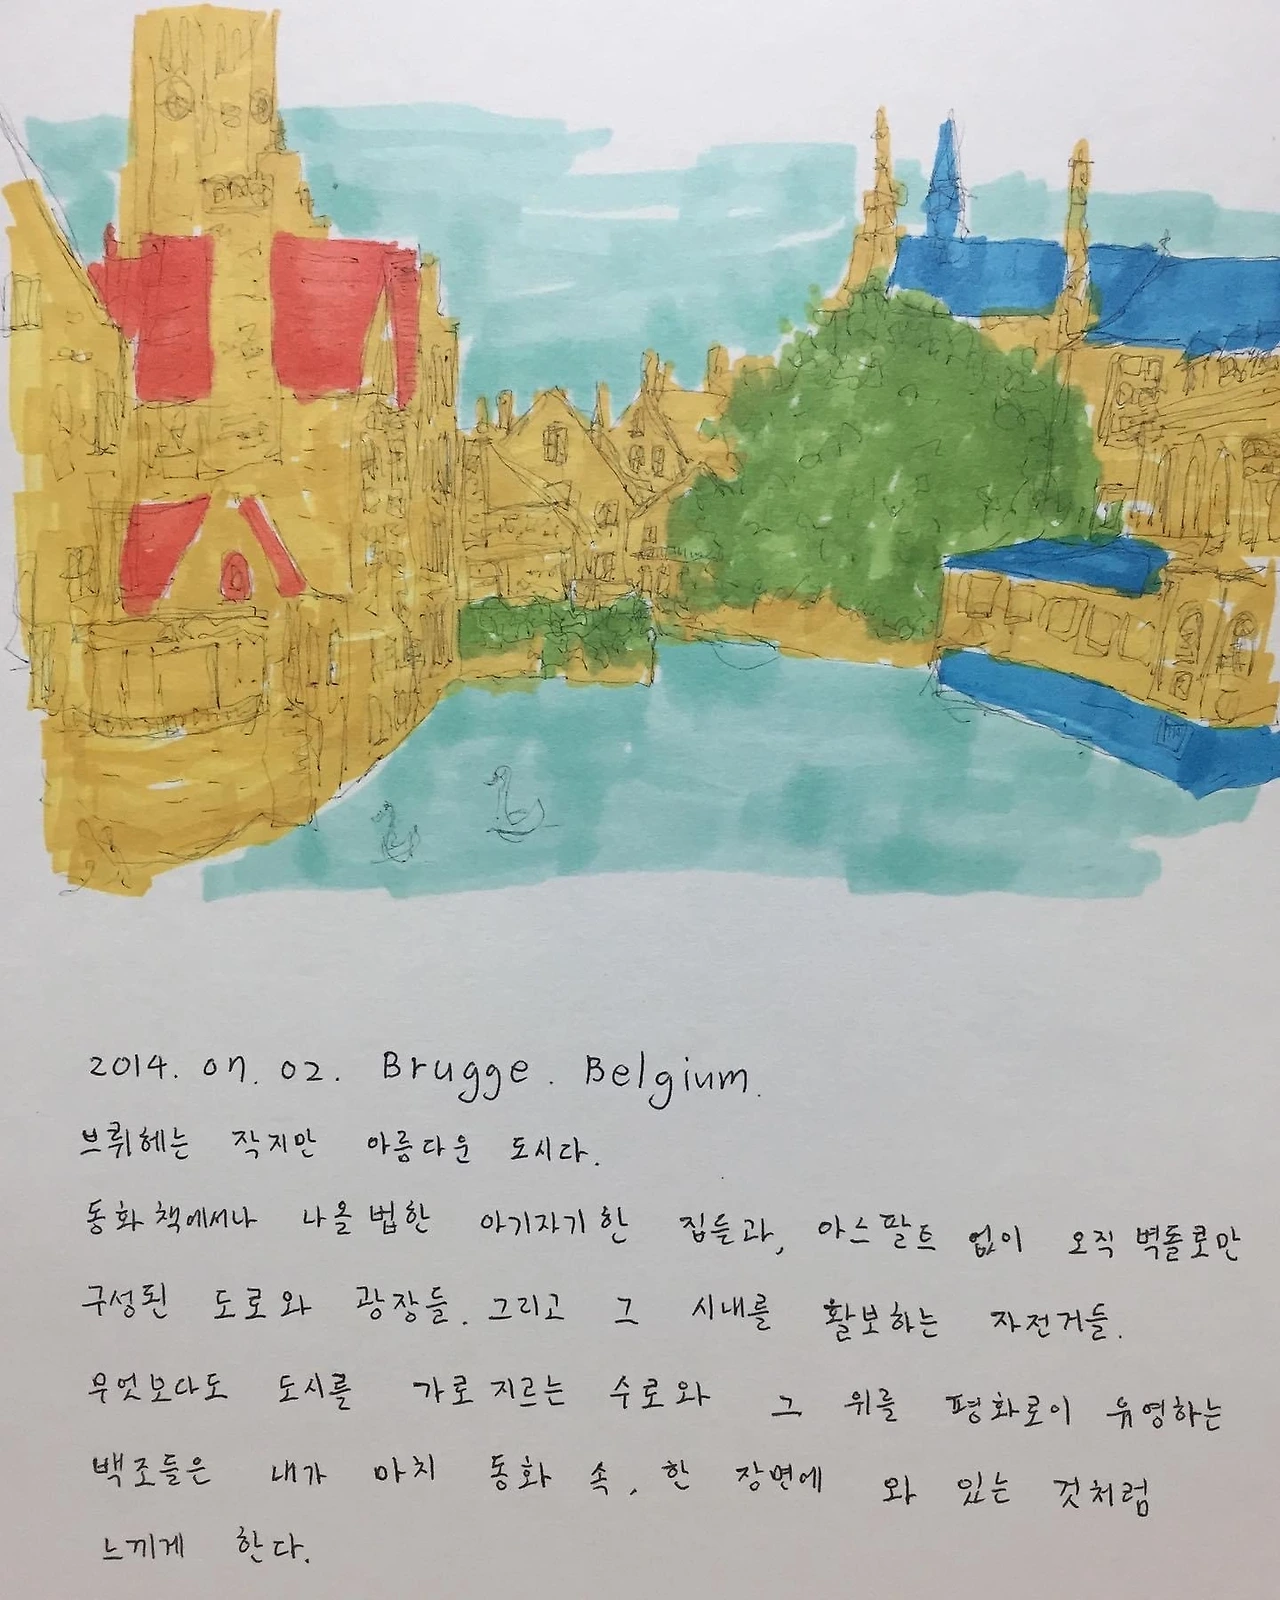 2014. 07. 02. Brugge. Belgium.
브뤼헤는 작지만 아름다운 도시다.
동화책에서나 나올법한 아기자기한 집들과, 아스팔트 없이 오직 벽돌로만
구성된 도로와 광장들. 그리고 그 시내를 활보하는 자전거들.
무엇보다도 도시를 가로지르는 수로와 그 위를 평화로이 유영하는
백조들은 내가 마치 동화 속, 한 장면에 와 있는 것처럼
느끼게 한다.